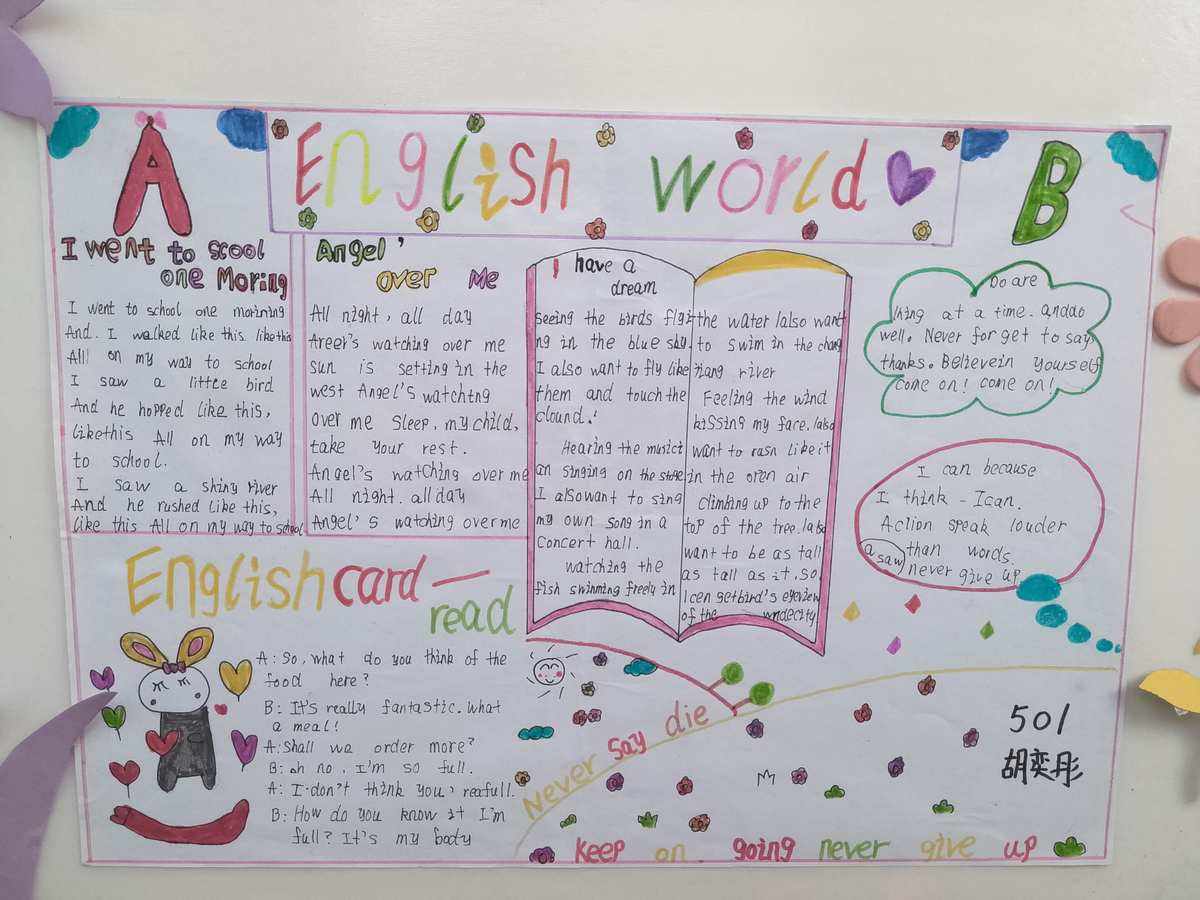 A
English world
B
I went to scool
one Moring
I went to school one morining
And. I walked like this likethis
Alll on my way to school
I saw a little bird
And he hopped like this,
likethis All on my way
to school.
I saw a shiny river
And he rushed like this,
like this All on my way to school
Angel'
over Me
All night, all day
Areel's watching over me
sun is setting in the
west Angel's watchtng
over me sleep, my child,
take your rest.
Angel's watching over me
All night. all day
Angel's watching over me
I have a
dream
seeing the birds flyi
ng in the blue sky.
I also want to fly like
them and touch the
clound.!
Hearing the musici
an singing on the stage
I alsowant to sing
my own song in a
concert hall.
watching the
fish swimming freely in
the water lalso want
to swim in the chang
jiang river
Feeling the wind
kissing my face. lalso
want to rasn like it
in the oren air
climbing up to the
top of the tree. lalso
want to be as tall
as tall as it. so
Icen getbird's eyeview
of the wndecity
Do are
thing at a time. anddo
well. Never forget to say
thanks. Believein yourself
come on! come on!
I can because
I think - Ican.
Aclion speak louder
a saw
than words.
never give up
English card—
read
A: So, what do you think of the
food here?
B: It's really fantastic. what
a meal!
A: Shall we order more?
B: oh no, I'm so full.
A: I don't think you, reafull.
B: How do you know it I'm
full? It's my body
Never say die
501
胡奕彤
keep on. going never give up